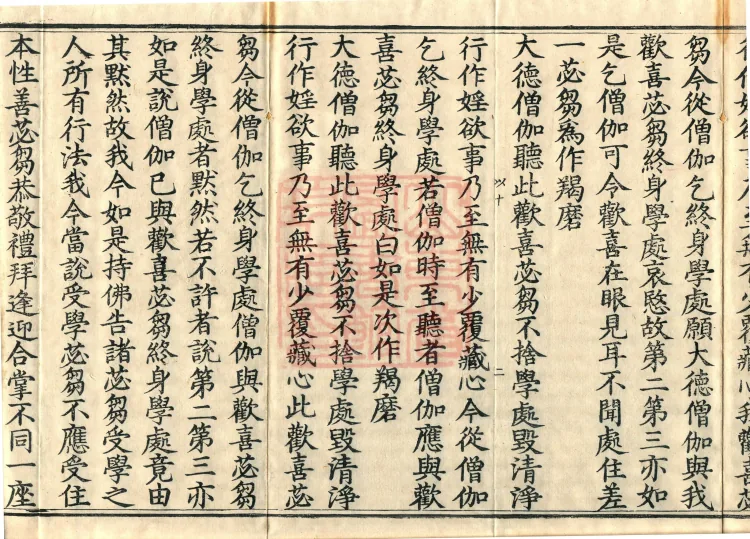 芻今從僧伽乞終身學處願大德僧伽與我
歡喜苾芻終身學處哀愍故第二第三亦如
是乞僧伽可令歡喜在眼見耳不聞處住差
一苾芻為作羯磨
大德僧伽聽此歡喜苾芻不捨學處毀清淨
十 二
行作婬欲事乃至無有少覆藏心今從僧伽
乞終身學處若僧伽時至聽者僧伽應與歡
喜苾芻終身學處白如是次作羯磨
大德僧伽聽此歡喜苾芻不捨學處毀清淨
行作婬欲事乃至無有少覆藏心此歡喜苾
芻今從僧伽乞終身學處僧伽與歡喜苾芻
終身學處者默然若不許者說第二第三亦
如是說僧伽已與歡喜苾芻終身學處竟由
其默然故我今如是持佛告諸苾芻受學之
人所有行法我今當說受學苾芻不應受住
本性善苾芻恭敬禮拜逢迎合掌不同一座